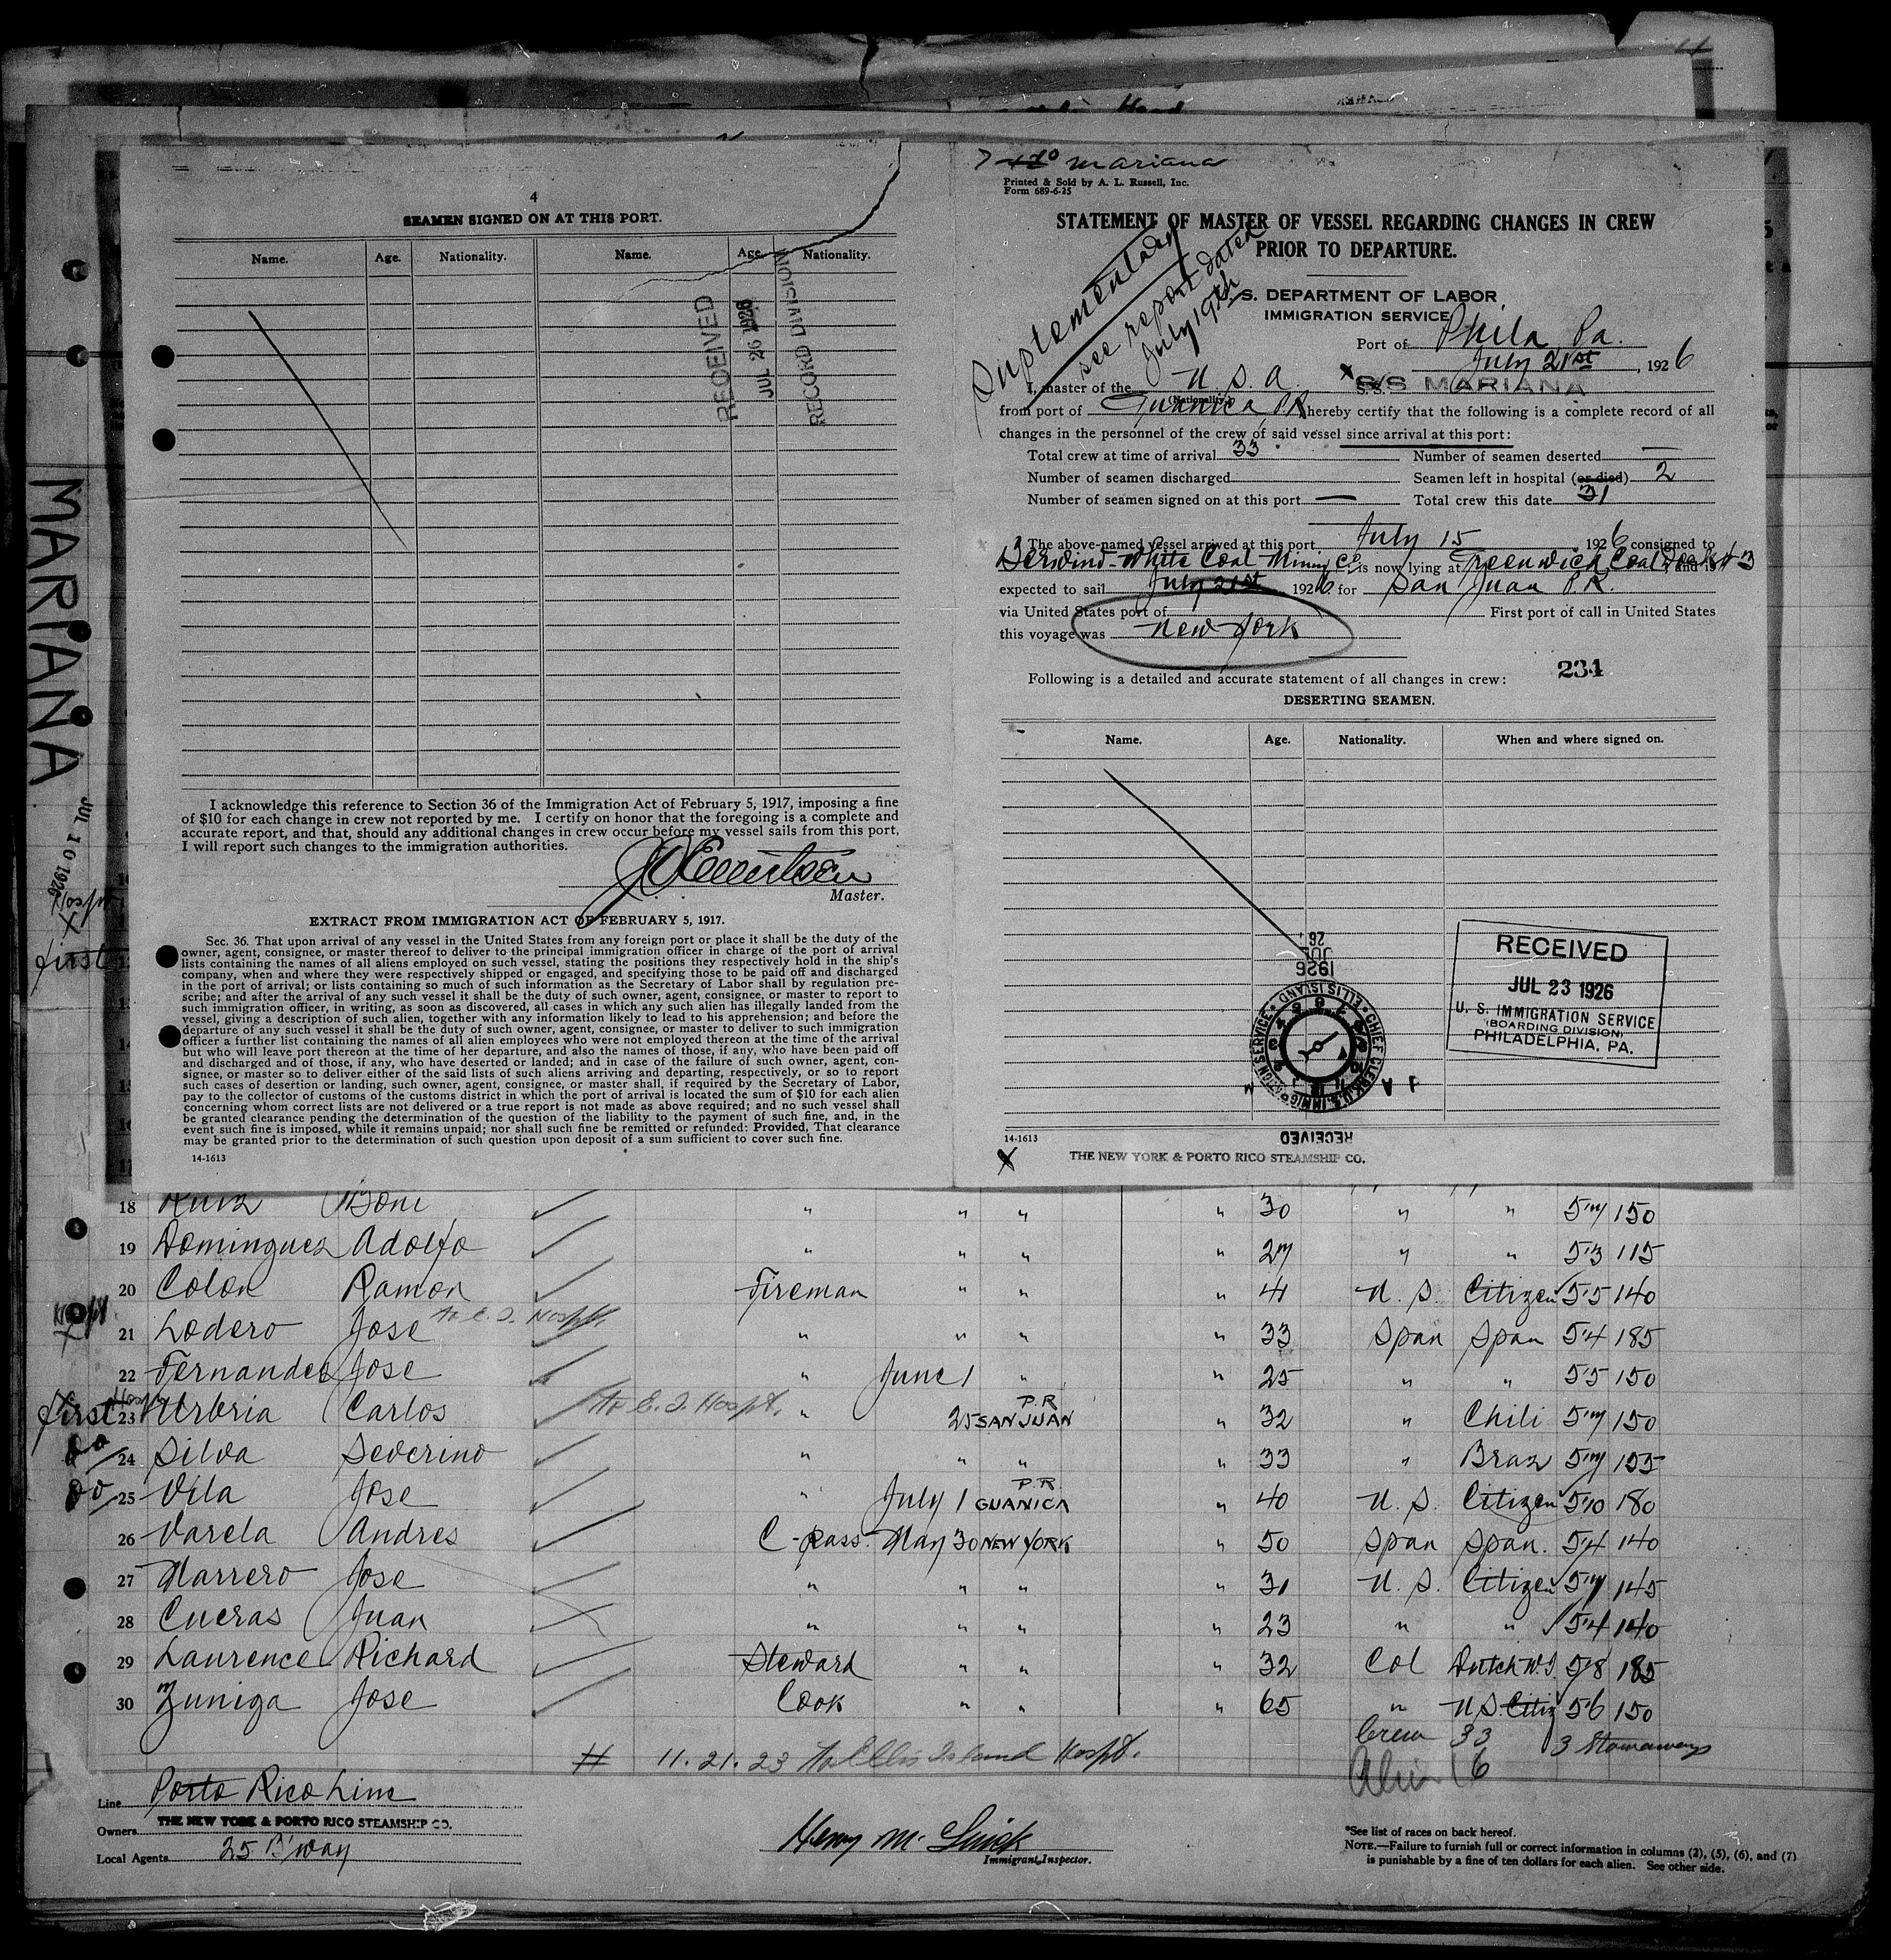 4
SEAMEN SIGNED ON AT THIS PORT.
Name. Age. Nationality. Name. Age. Nationality.
RECEIVED
JUL 26 1926
RECORD DIVISION
I acknowledge this reference to Section 36 of the Immigration Act of February 5, 1917, imposing a fine
of $10 for each change in crew not reported by me. I certify on honor that the foregoing is a complete and
accurate report, and that, should any additional changes in crew occur before my vessel sails from this port,
I will report such changes to the immigration authorities.
Master.
EXTRACT FROM IMMIGRATION ACT OF FEBRUARY 5, 1917.
Sec. 36. That upon arrival of any vessel in the United States from any foreign port or place it shall be the duty of the
owner, agent, consignee, or master thereof to deliver to the principal immigration officer in charge of the port of arrival
lists containing the names of all aliens employed on such vessel, stating the positions they respectively hold in the ship's
company, when and where they were respectively shipped or engaged, and specifying those to be paid off and discharged
in the port of arrival; or lists containing so much of such information as the Secretary of Labor shall by regulation pre-
scribe; and after the arrival of any such vessel it shall be the duty of such owner, agent, consignee, or master to report to
such immigration officer, in writing, as soon as discovered, all cases in which any such alien has illegally landed from the
vessel, giving a description of such alien, together with any information likely to lead to his apprehension; and before the
departure of any such vessel it shall be the duty of such owner, agent, consignee, or master to deliver to such immigration
officer a further list containing the names of all alien employees who were not employed thereon at the time of the arrival
but who will leave port thereon at the time of her departure, and also the names of those, if any, who have been paid off
and discharged and of those, if any, who have deserted or landed; and in case of the failure of such owner, agent, con-
signee, or master so to deliver either of the said lists of such aliens arriving and departing, respectively, or so to report
such cases of desertion or landing, such owner, agent, consignee, or master shall, if required by the Secretary of Labor,
pay to the collector of customs of the customs district in which the port of arrival is located the sum of $10 for each alien
concerning whom correct lists are not delivered or a true report is not made as above required; and no such vessel shall
be granted clearance pending the determination of the question of the liability to the payment of such fine, and, in the
event such fine is imposed, while it remains unpaid; nor shall such fine be remitted or refunded: Provided, That clearance
may be granted prior to the determination of such question upon deposit of a sum sufficient to cover such fine.
14-1613
Mariana
Printed & Sold by A. L. Russell, Inc.
Form 689-6-25
STATEMENT OF MASTER OF VESSEL REGARDING CHANGES IN CREW
PRIOR TO DEPARTURE.
Suplementary
see report dated
July 19th
U. S. DEPARTMENT OF LABOR
IMMIGRATION SERVICE
Port of Phila Pa.
July 21st, 1926
I, master of the U.S.A. (Nationality.) S.S. S/S MARIANA
from port of Guanica P.R. hereby certify that the following is a complete record of all
changes in the personnel of the crew of said vessel since arrival at this port:
Total crew at time of arrival 33 Number of seamen deserted —
Number of seamen discharged Seamen left in hospital (or died) 2
Number of seamen signed on at this port — Total crew this date 31
The above-named vessel arrived at this port July 15, 1926 consigned to
Berwind-White Coal Mining Co. is now lying at Greenwich Coal Docks #3 and is
expected to sail July 21st, 1926 for San Juan P.R.
via United States port of First port of call in United States
this voyage was New York
234
Following is a detailed and accurate statement of all changes in crew:
DESERTING SEAMEN.
Name. Age. Nationality. When and where signed on.
RECEIVED
JUL 23 1926
U. S. IMMIGRATION SERVICE
(BOARDING DIVISION)
PHILADELPHIA, PA.
1926
JUL
26
CHIEF CLERK, U.S. IMMIGRATION SERVICE ELLIS ISLAND
RECEIVED
14-1613
THE NEW YORK & PORTO RICO STEAMSHIP CO.
MARIANA
JUL 10 1926
Hospt
X
first
18 Ruiz Boni " " " " 30 " " 5'7 150
19 Dominguez Adolfo " " " " 27 " " 5'3 115
20 Colon Ramon Fireman " " " 41 U.S. Citizen 5'5 140
Hospt X 21 Lodero Jose To E.I. Hospt. " " " " 33 Span Span 5'4 185
22 Fernandez Jose " June 1 " " 25 " " 5'5 150
first Hospt 23 Urbria Carlos To E.I. Hospt. " 25 SAN JUAN P.R " 32 " Chili 5'7 150
do 24 Silva Severino " " " " 33 " Braz 5'7 155
do 25 Vila Jose " July 1 GUANICA P.R. " 40 U.S. Citizen 5'10 180
26 Varela Andres C-pass. May 30 NEW YORK " 50 Span Span. 5'4 140
27 Marrero Jose " " " " 31 U.S. Citizen 5'7 145
28 Cueras Juan " " " " 23 " " 5'4 140
29 Laurence Richard Steward " " " 32 Col Dutch W.I. 5'8 185
30 Zuniga Jose Cook " " " 65 " U.S. Citiz 5'6 150
Crew 33 3 Stowaways
# 11. 21. 23 To Ellis Island Hospt.
Alien 16
Line Porto Rico Line
Owners THE NEW YORK & PORTO RICO STEAMSHIP CO.
Local Agents 25 B'way
Immigrant Inspector.
*See list of races on back hereof.
NOTE.—Failure to furnish full or correct information in columns (2), (5), (6), and (7)
is punishable by a fine of ten dollars for each alien. See other side.